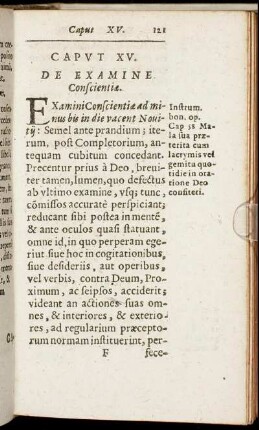 Caput XV. 121
CAPVT XV.
DE EXAMINE
Conscientiæ.
EXamini Conscientiæ ad mi-
nus bis in die vacent Noui-
tij: Semel ante prandium; ite-
rum, post Completorium, an-
tequam cubitum concedant.
Precentur prius à Deo, breui-
ter tamen, lumen, quo defectus
ab vltimo examine, vsq; tunc,
cõmissos accuratè perspiciant;
reducant sibi postea in mentẽ,
& ante oculos quasi statuant,
omne id, in quo perperam ege-
rint siue hoc in cogitationibus,
siue desideriis, aut operibus,
vel verbis, contra Deum, Pro-
ximum, ac seipsos, acciderit;
videant an actiones suas om-
nes, & interiores, & exterio-
res, ad regularium præcepto-
rum normam instituerint, per-
F fece-
Instrum.
bon. op.
Cap 58 Ma-
la sua præ-
terita cum
lacrymis vel
gemitu quo-
tidie in ora-
tione Deo
confiteri.